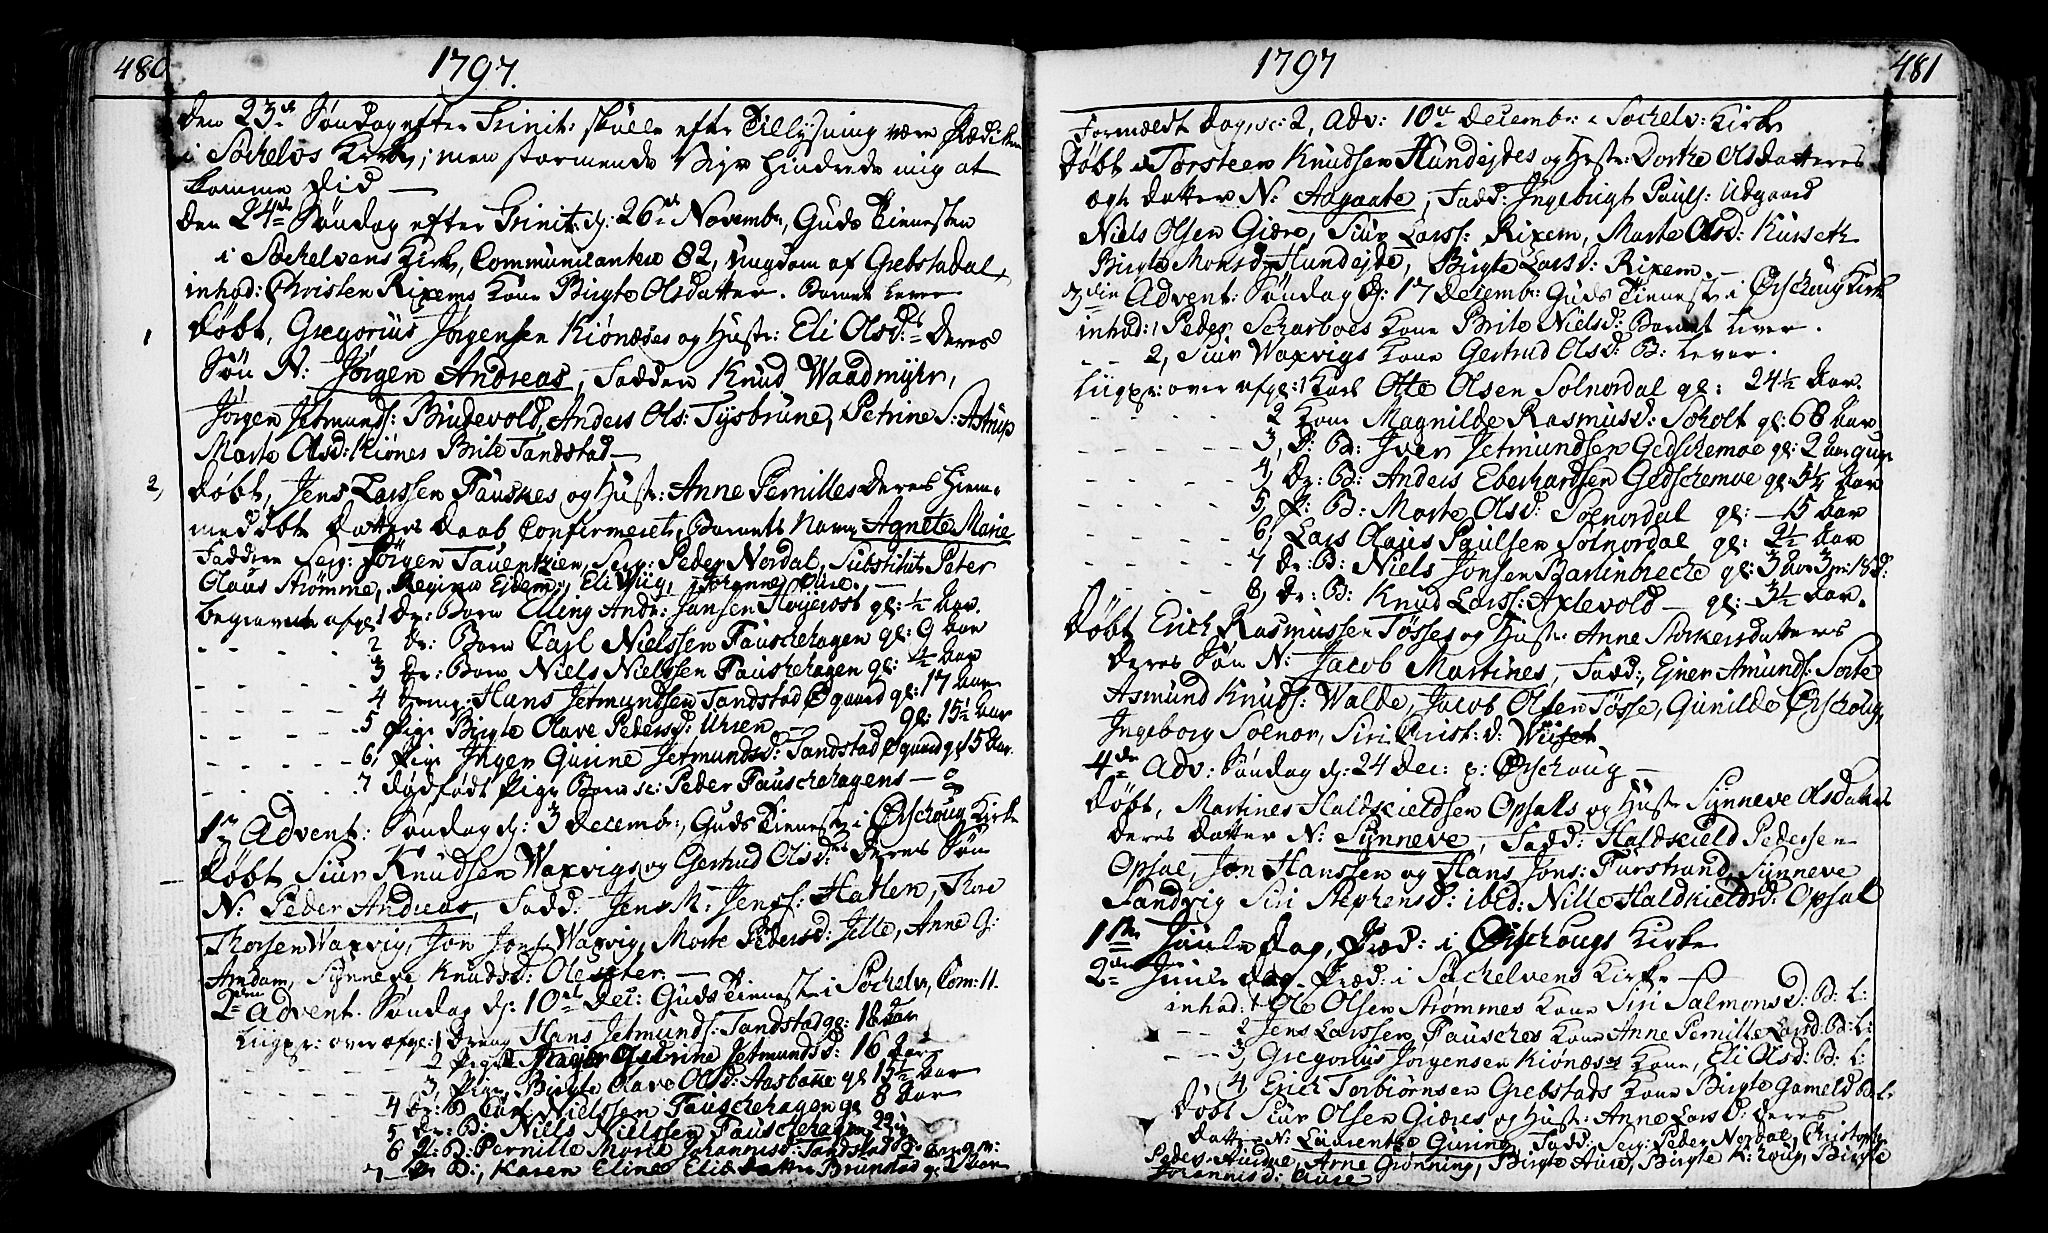 480
1797.
Den 23de Søndag efter Trinit: skulle efter Tillysning være Prædiken
i Søchelvs Kirke; men stormende Vejr hindrede mig at
komme did —
Den 24de Søndag efter Trinit: d: 26de Novembr, Guds Tienesten
i Søchelvens Kirke, Communicantere 82, Ungdom af Grebstadal
inhod: Christen Rixems Kone Birgte Olsdatter. Barnet lever
1 Døbt, Gregorius Jørgensen Kiønæses og Hustr: Eli Olsd: deres
Søn N: Jørgen Andreas, Faddere Knud Waadmyhr,
Jørgen Jetmunds: Brudevold, Anders Ols: Tysbrune, Petrine S: Astrup
Marte Olsd: Kiønes Brite Tandstad —
2, Døbt, Jens Larssen Fauskes og Hustr: Anne Pernilles deres hiem-
medøbt datters daab Confirmeret, Barnets Navn Agnete Marie
Faddere Sejg: Jørgen Tauentzien, Sejg: Peder Nordal, Substitut Peter
Olaus Strømme, Regina Ejdem, Eli Hug, Johanne Aure. —
begravne afge: 1 Dr: Barn Elling Andr: Jansen Højerost gl: ½ Aar.
2 dr: Barn Carl Nielssen Fauschehagen gl: 9 Aar
3 Dr: Barn Niels Nielssen Fauschehagen gl: 4½ Aar
4 Dreng: Hans Jetmundsen Tandstad Øgaard gl: 17 Aar
5 Pige Birgte Olave Pedersd: Uhren — gl: 15½ Aar
6, Pige Inger Gurine Jetmundsd: Tandstad Øgaard gl 15 Aar.
7 dødfødt Pige Barn sc: Peder Fauschehagens —
1ste Advent: Søndag d: 3 Decembr, Guds Tieneste i Ørschoug Kirke
Døbt Siur Knudsen Waxvigs og Gertrud Olsd: deres Søn
N: Peder Andreas, Fadd: Jens M: Jenss: Hatlen, Thore
Thorsen Waxvig, Jon Jons: Waxvig, Marte Pedersd: Jelle, Anne G:
Amdam, Synneve Knudsd: Olesæter. —
2den Advent. Søndag d: 10de Dec: Guds Tieneste i Søchelv, Com: 11.
Liigpr: over afge: 1 Dreng Hans Jetmunds: Tandstad gl: 18 Aar
2 Pige Inger Gurine Jetmundsd: 16 Aar
3 Pige Birgte Olave Olsd: Aasbakke gl 15½ Aar
4 Dr: B: Carl Nielssen Fauschehagen gl 8 Aar
5 Dr: B: Niels Nielssen Fauschehagen
6 P: B: Pernille Marie Johannisd: Tandstad
7 — B:, Karen Eline Elisdatter Brunstad gl 2 Aar
481
1797
Formældt dag, sc: 2, Adv: 10de Decembr: i Søchelv: Kirke
Døbt Torsteen Knudsen Hundejdes og Hustr: Dorthe Olsdatteres
ægte datter N: Aagaate, Fadd: Ingebrigt Pauls: Udgaard
Niels Olsen Giære, Siur Larss: Rixem, Marte Olsd: Kurseth
Birgte Monsd Hundejde, Birgte Larsd: Rixem. —
3die Advent: Søndag d: 17 Decembr: Guds Tieneste i Ørschoug Kirke
inhod: 1 Peder Scharboes Kone Brite Nielsd: Barnet lever.
— 2, Siur Waxvigs Kone Gertrud Olsd: B: lever.
Liigpr: over afge: 1 Karl Otte Olsen Solnordal gl: 24½ Aar.
2 Kone Magnilde Rasmusd: Soholt gl: 68 Aar
3, D: B: Iver Jetmundsen Gedschemoe gl: 2 Aar
4, Dr: B: Anders Eberhardsen Gedschemoe gl 5¼ Aar
5, P: B: Marte Olsd: Solnordal gl: — 15 Aar
6, Lars Olaus Paulsen Solnordal gl: 2½ Aar
7 Dr: B: Niels Jonsen Barlinbrecke gl: 3 Aar 3 m: 18 d:
8, Dr: B: Knud Larss: Axlevold — gl: 3½ Aar.
Døbt Erich Rasmussen Tøsses og Hustr: Anne Storkersdatters
deres Søn N: Jacob Martines, Fadd: Ejner Amunds: Sorte
Asmund Knuds: Walde, Jacob Olsen Tøsse, Gunilde Ørschoug,
Ingeborg Solnor, Siri Christ: d: Wiiset
4de Adv: Søndag d: 24 Dec: p: Ørschoug —
Døbt, Martines Haldkieldsen Opsals og Hustr Synneve Olsdatters
deres datter N: Synneve, Fadd: Haldkield Pedersen
Opsal, Jon Hanssen og Hans Jons: Furstrand, Synneve
Sandvig Siri Stephensd: ibid: Nille Haldkieldsd: Opsal
1ste Juule dag, Præd: i Ørschougs Kirke
2den Juule dag. Præd: i Søchelvens Kirke —
inhod: 1 Ole Olsen Strømmes Kone Siri Salmonsd: B: L:
2 Jens Larssen Fausches Kone Anne Pernille Larsd: B: L:
3, Gregorius Jørgensen Kiønæses Kone, Eli Olsd: B: L:
4 Erich Torbiørnsen Grebstads Kone Birgte Gameld B: L:
Døbt Siur Olsen Giæres og Hustr: Anne Larsd: deres
datter N: Laurentze Guring, Fadd: Sejg: Peder Nordal, Christopher
Peders: Aurdne, Arne Grønning, Birgte Aure, Birgte K: houg, Birgte
Johannisd: Aure